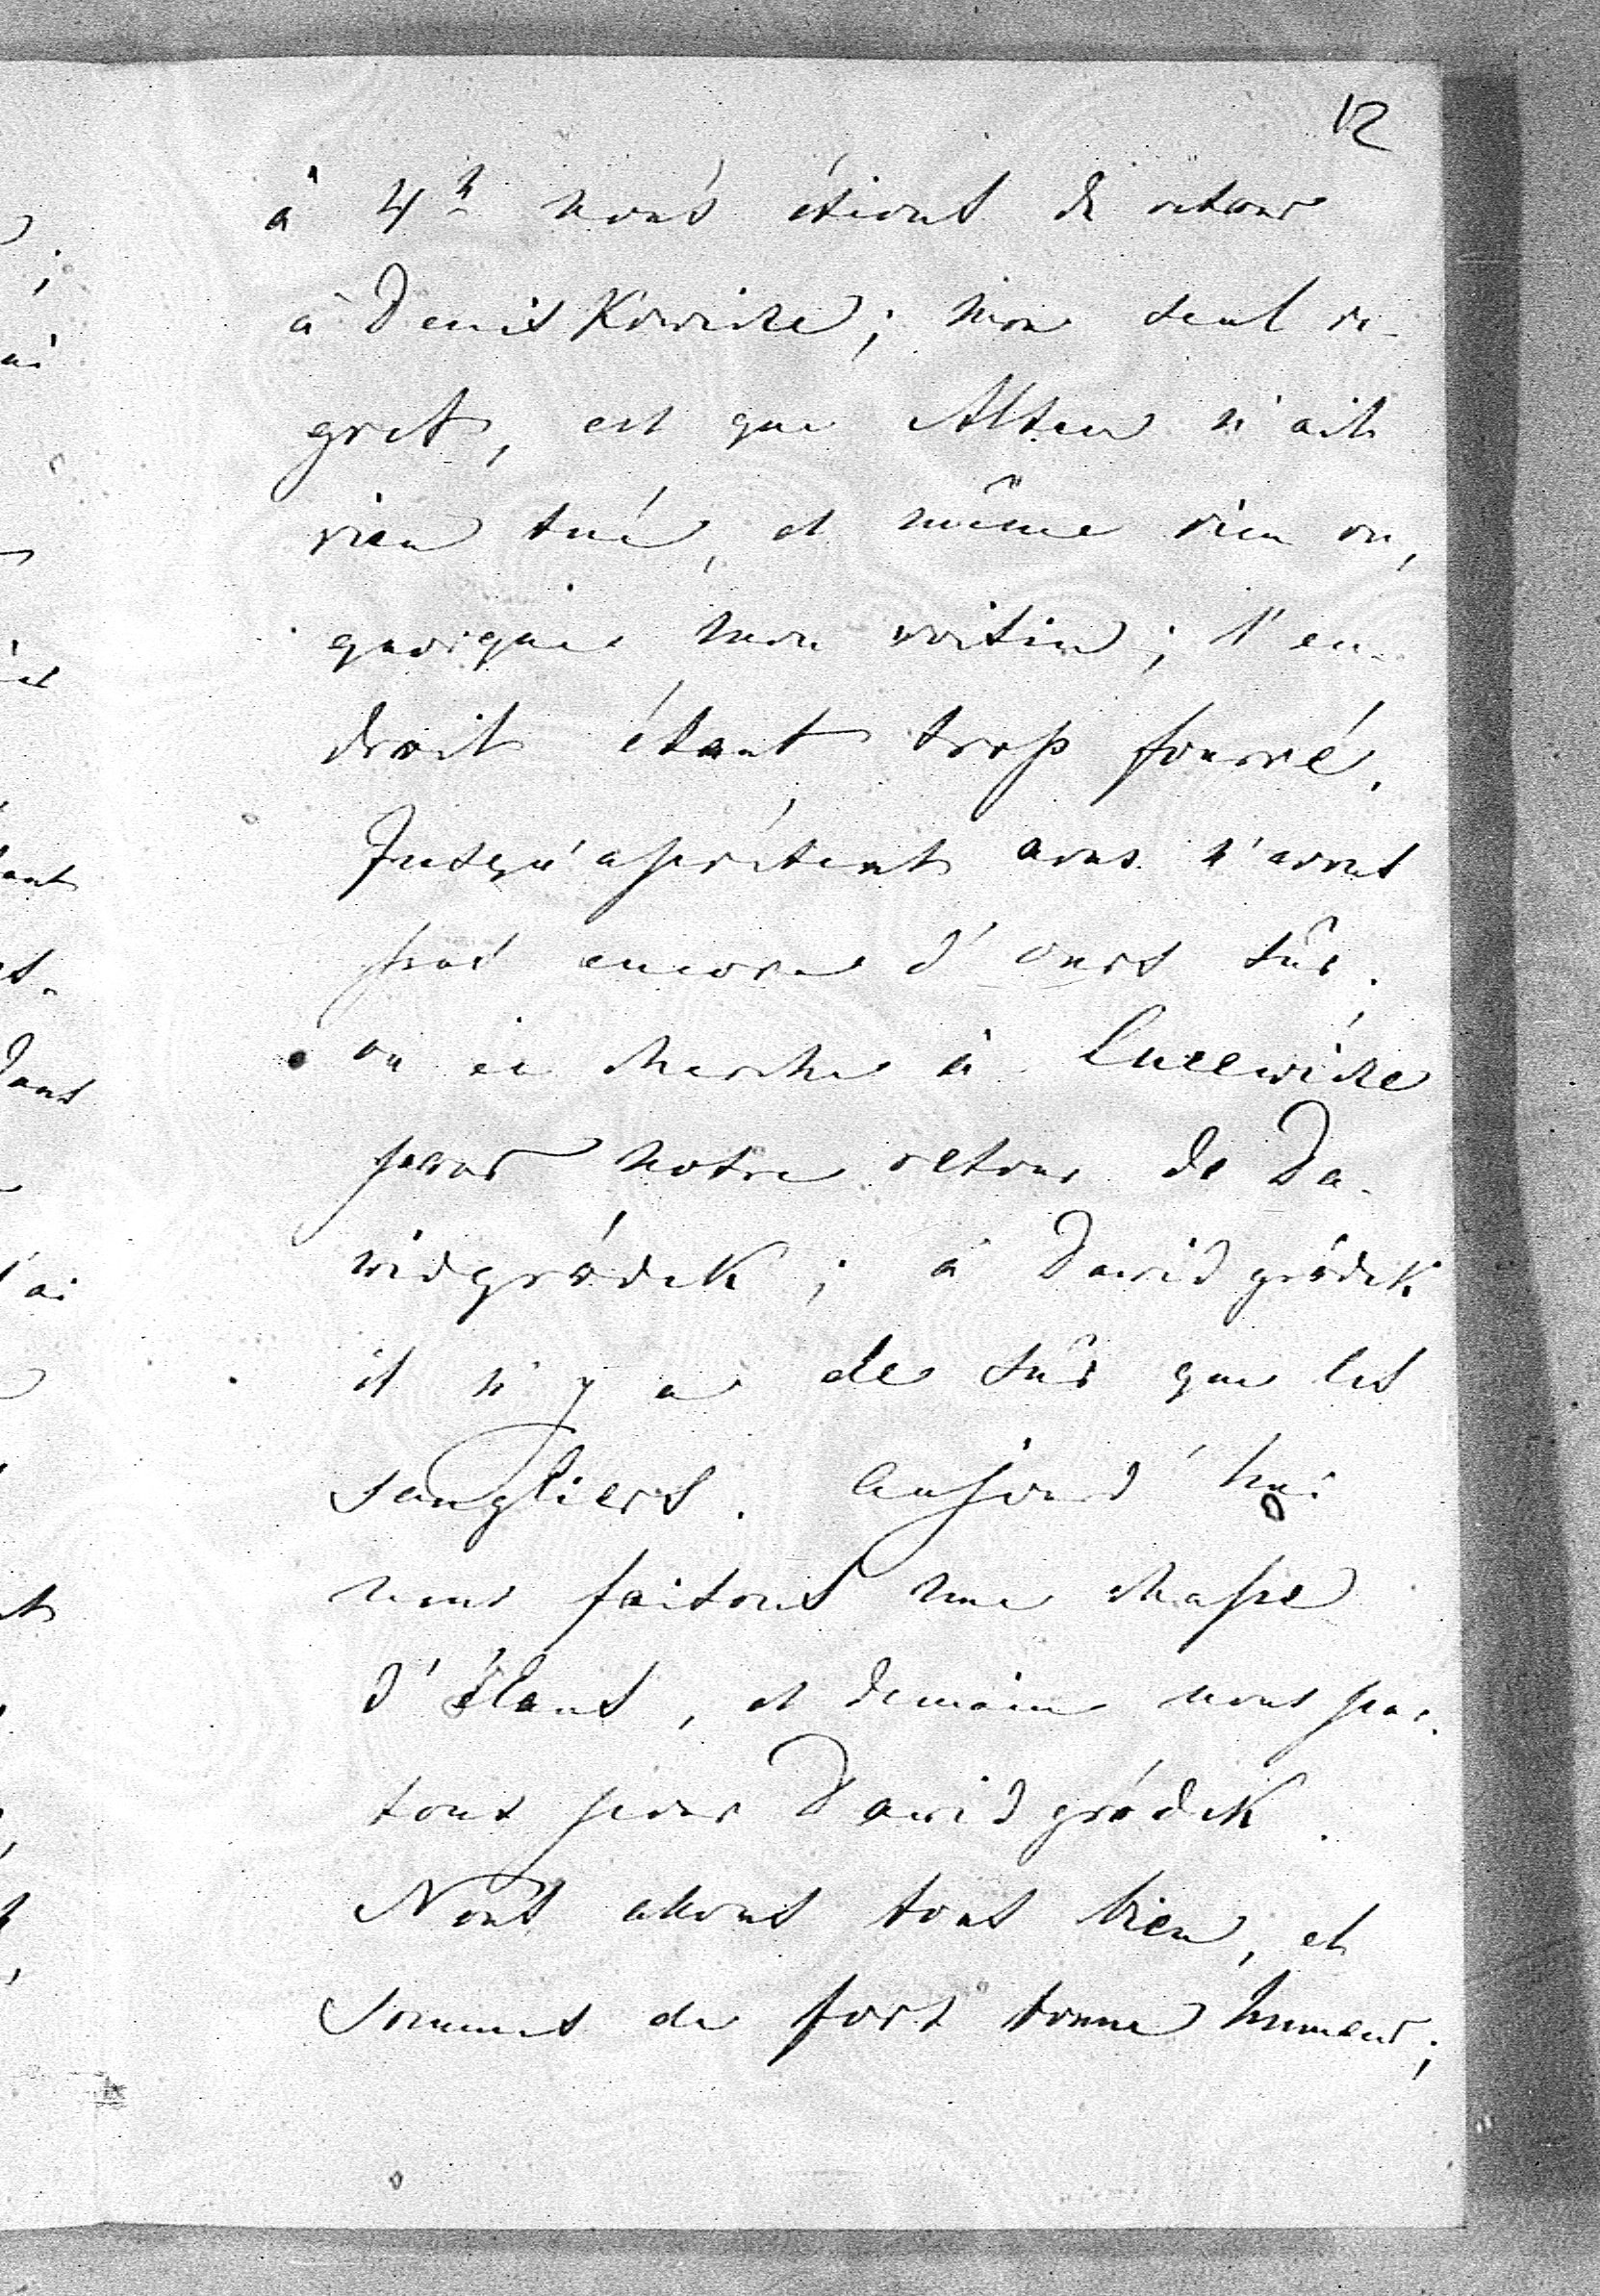 12
à 4h nous étions de retour
à Deniskowicze; mon seul re-
gret, est que Alten n'ait
rien tué, et même rien vu,
quoique mon voisin; l'en-
droit étant trop fourré.
Jusqu'aprésent nous n'avons
pas encore d'ours sûr.
on en cherche à
pour notre retour de Da-
widgródek; à Dawidgródek
il n'y a de sûr que les
sangliers. Aujourd'hui
nous faisons une chasse
d'élans, et demain nous par-
tons pour Dawidgródek.
Nous allons tous bien, et
sommes de fort bonne humeur;